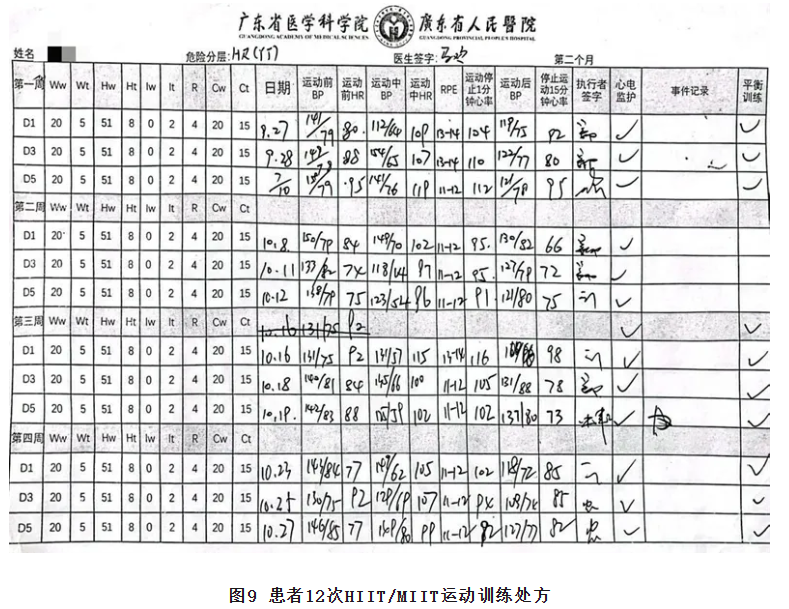 广东省医学科学院 廣東省人民醫院
GUANGDONG ACADEMY OF MEDICAL SCIENCES GUANGDONG PROVINCIAL PEOPLE'S HOSPITAL
姓名 危险分层: 医生签字: 第二个月
第一周 Ww Wt Hw Ht Iw It R Cw Ct 日期 运动前BP 运动前HR 运动中BP 运动中HR RPE 运动停止1分钟心率 运动后BP 停止运动15分钟心率 执行者签字 心电监护 事件记录 平衡训练
D1 20 5 51 8 0 2 4 20 15 9.27 141/79 80 112/64 109 13-14 104 119/75 82 ✓ ✓
D3 20 5 51 8 0 2 4 20 15 9.28 88 154/65 107 13-14 110 122/77 80 ✓ ✓
D5 20 5 51 8 0 2 4 20 15 95 141/76 119 11-12 112 121/78 95 ✓ ✓
第二周 Ww Wt Hw Ht Iw It R Cw Ct
D1 20 5 51 8 0 2 4 20 15 10.8 150/79 84 149/70 102 11-12 95 130/82 66 ✓
D3 20 5 51 8 0 2 4 20 15 10.11 133/82 74 118/64 97 11-12 95 127/79 72 ✓
D5 20 5 51 8 0 2 4 20 15 10.12 138/79 75 123/54 96 11-12 91 121/80 75 ✓
第三周 Ww Wt Hw Ht Iw It R Cw Ct 10.16 131/75 92 ✓ ✓
D1 20 5 51 8 0 2 4 20 15 10.16 131/75 92 131/57 115 13-14 116 98 ✓ ✓
D3 20 5 51 8 0 2 4 20 15 10.18 140/81 84 100 11-12 105 131/88 78 ✓ ✓
D5 20 5 51 8 0 2 4 20 15 10.19 142/83 88 102 11-12 102 137/80 73 ✓ ✓
第四周 Ww Wt Hw Ht Iw It R Cw Ct
D1 20 5 51 8 0 2 4 20 15 10.23 143/84 77 149/62 105 11-12 102 118/72 85 ✓ ✓
D3 20 5 51 8 0 2 4 20 15 10.25 130/75 92 129/69 107 11-12 94 108/74 85 ✓ ✓
D5 20 5 51 8 0 2 4 20 15 10.27 146/85 77 99 11-12 82 127/77 82 ✓ ✓
图9 患者12次HIIT/MIIT运动训练处方